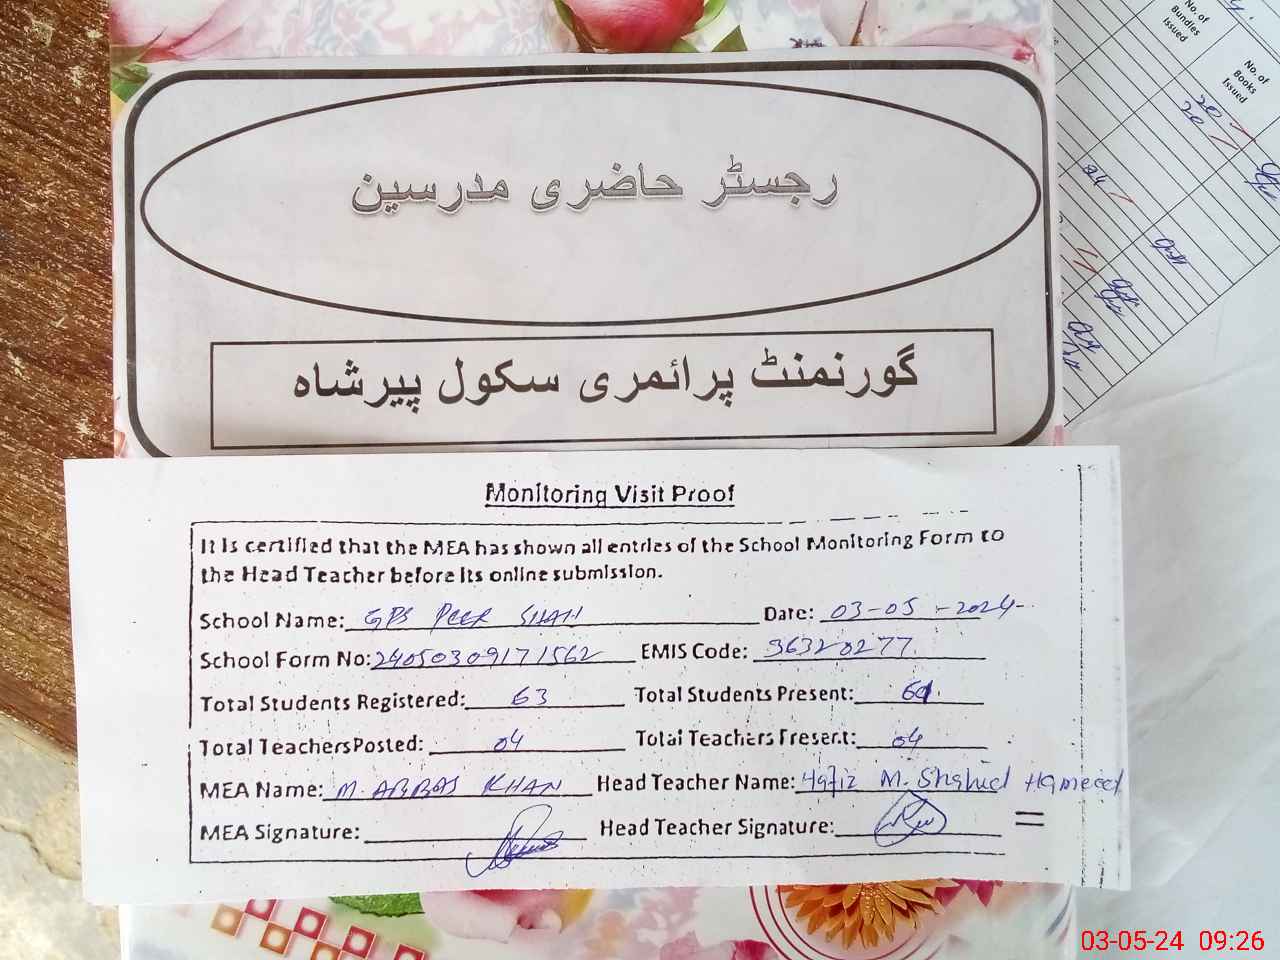 رجسٹر حاضری مدرسین
گورنمنٹ پرائمری سکول پیرشاہ
Monitoring Visit Proof
It is certified that the MEA has shown all entries of the School Monitoring Form to
the Head Teacher before its online submission.
School Name: GPS PEER SHAH Date: 03-05-2024
School Form No: 24050309171562 EMIS Code: 36320277
Total Students Registered: 63 Total Students Present:
Total Teachers Posted: 04 Total Teachers Present: 04
MEA Name: M. ABBAS KHAN Head Teacher Name: Hafiz M. Shahid Hameed
MEA Signature: Head Teacher Signature:
No. of
Bundles
Issued
No. of
Books
Issued
20
20
24
03-05-24 09:26